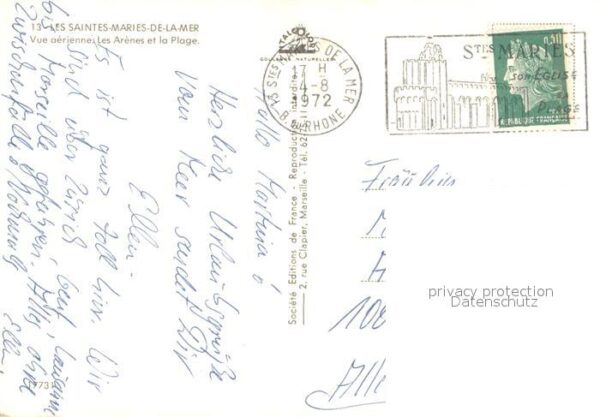 13 - LES SAINTES-MARIES-DE-LA-MER
Vue aérienne. Les Arènes et la Plage.
COULEURS NATURELLES
13 STES MARIES DE LA MER
17 H
4-8
1972
B. DU RHONE
STES MARIES
SON EGLISE
SA
PLAGE
0,50
REPUBLIQUE FRANCAISE
Hallo Martina!
Herzliche Urlaubsgrüße
vom Meer sendet Dir
Ellen.
Es ist ganz toll hier. Wir
sind über Zürich, Genf, Lausanne
bis Marseille gefahren. Alles ohne
Zwischenfälle
Ellen.
Société Editions de France - Reproduction interdite
2, rue Clapier, Marseille - Tél. 62
Fräulein
108
Alle
privacy protection
Datenschutz
17731